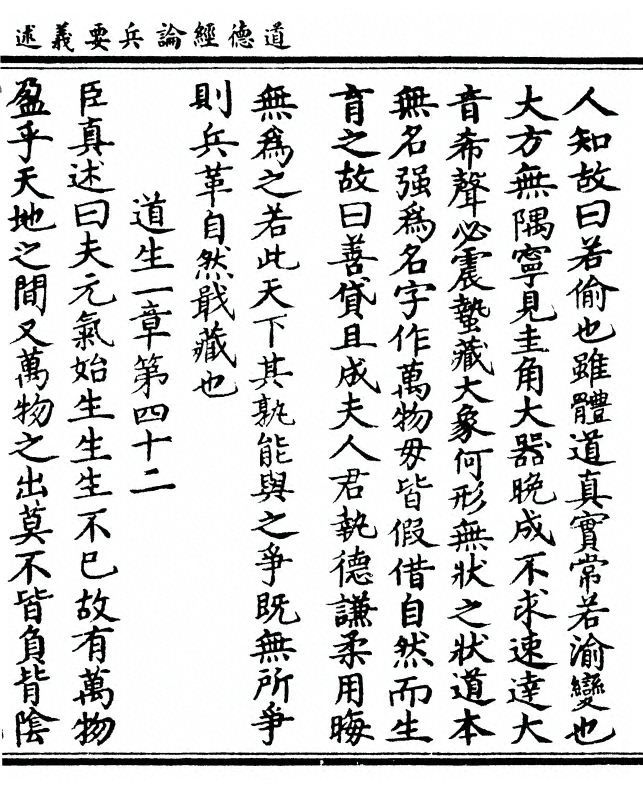 道德經論兵要義述
人知故曰若偷也雖體道真實常若渝變也
大方無隅寧見圭角大器晚成不求速達大
音希聲必震蟄藏大象何形無狀之狀道本
無名强為名字作萬物毋皆假借自然而生
育之故曰善貸且成夫人君執德謙柔用晦
無為之若此天下其孰能與之爭既無所爭
則兵革自然戢藏也
道生一章第四十二
臣真述曰夫元氣始生生生不已故有萬物
盈乎天地之間又萬物之出莫不皆負背陰